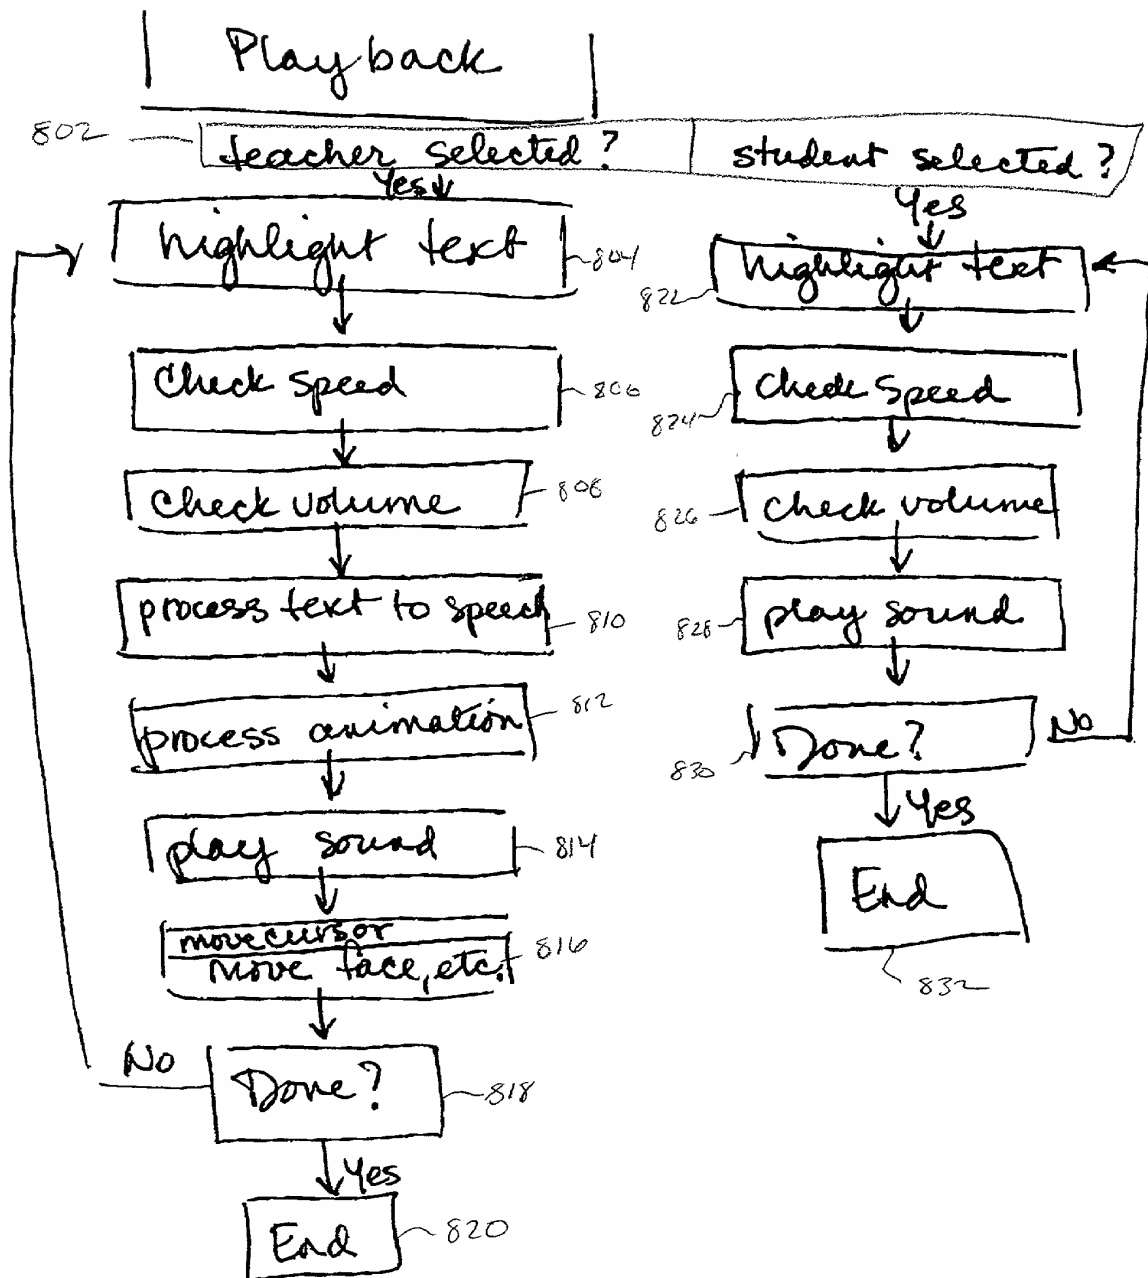 Playback
802 teacher selected? student selected?
Yes
highlight text 804
Check speed 806
Check volume 808
process text to speech 810
process animation 812
play sound 814
move cursor
move face, etc. 816
No
Done? 818
Yes
End 820
Yes
highlight text
822
Check Speed
824
Check volume
826
play sound
828
Done? No
830
Yes
End
832